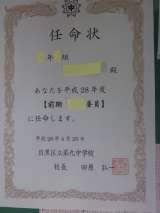 任命状
年 組
殿
あなたを平成28年度
【前期 委員】
に任命します。
平成28年4月25日
目黒区立第九中学校
校長 田原 弘一